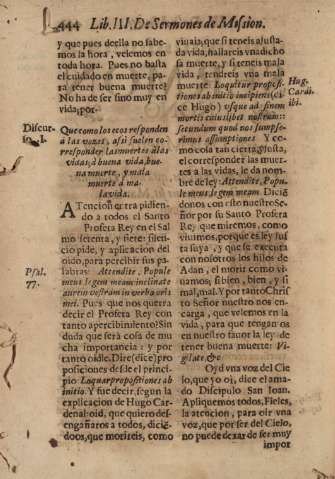 444 Lib. III. De Sermones de Mission.
y que pues della no sabe-
mos la hora, velemos en
toda hora. Pues no basta
el cuidado en muerte, pa-
ra tener buena muerte?
No ha de ser sino muy en
vida, por-
Discur-
so. I.
Que como los ecos responden
a las vozes, assi suelen co-
rresponder las muertes a las
vidas, à buena vida, bue-
na muerte, y mala
muerte à ma-
la vida.
ATencion está pidien-
do a todos el Santo
Profeta Rey en el Sal
mo setenta, y siete: silen-
cio pide, y aplicacion del
oido, para percibir sus pa-
labras:
Psal.
77.
Attendite, Popule
meus legem meam: inclinate
aurem vestram in verba oris
mei. Pues que nos querrà
decir el Profeta Rey con
tanto apercibimiento? Sin
duda que serà cosa de mu
cha importancia: y por
tanto oidle. Dire (dice) pro
posiciones desde el princi-
pio: Loquar propositiones ab
initio. Y fue decir, segun la
explicacion de Hugo Car-
denal: oid, que quiero des-
engañaros a todos, dicié-
doos, que morireis, como
viviais, que si teneis ajusta-
da vida, hallareis vna dicho
sa muerte, y si teneis mala
vida, tendreis vna mala
muerte: Loquetur proposi-
tiones ab initio incipiens (di-
ce Hugo) usque ad finem
mortis cuiuslibet nostrum:
secundum quod nos sumpse-
rimus assumptiones. Y co-
Hug.
Cardi-
ibi.
mo cosa tan cierta, y justa,
el corresponder las muer-
tes a las vidas, le da nom-
bre de ley: Attendite, Popu-
le meus legem meam. Dicié-
donos con esto nuestro Se-
ñor por su Santo Profeta
Rey que miremos, como
vivimos, porque es ley jus-
ta suya, y que se executa
con nosotros los hijos de
Adan, el morir como vi-
vimos; si bien, bien, y si
mal, mal. Y por tanto Chris
to Señor nuestro nos en-
carga, que velemos en la
vida, para que tengan os
en nuestro fauor la ley de
tener buena muerte: Vi-
gilate, &c.
Oyd vna voz del Cie-
lo, que yo oì, dice el ama-
do Discipulo San Ioan.
Apliquemos todos, Fieles,
la atencion, para oir vna
voz, que por ser del Cielo,
no puede dexar de ser muy
impor